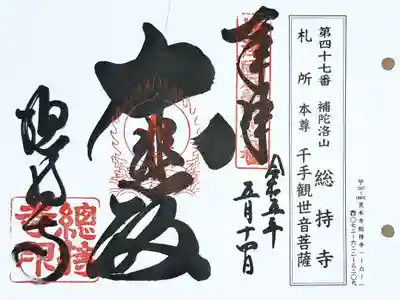 第四十七番 補陀洛山 総持寺
札所 本尊 千手観世音菩薩
奉拝
令和五年
五月十四日
大悲殿
総持寺
總持
寺印